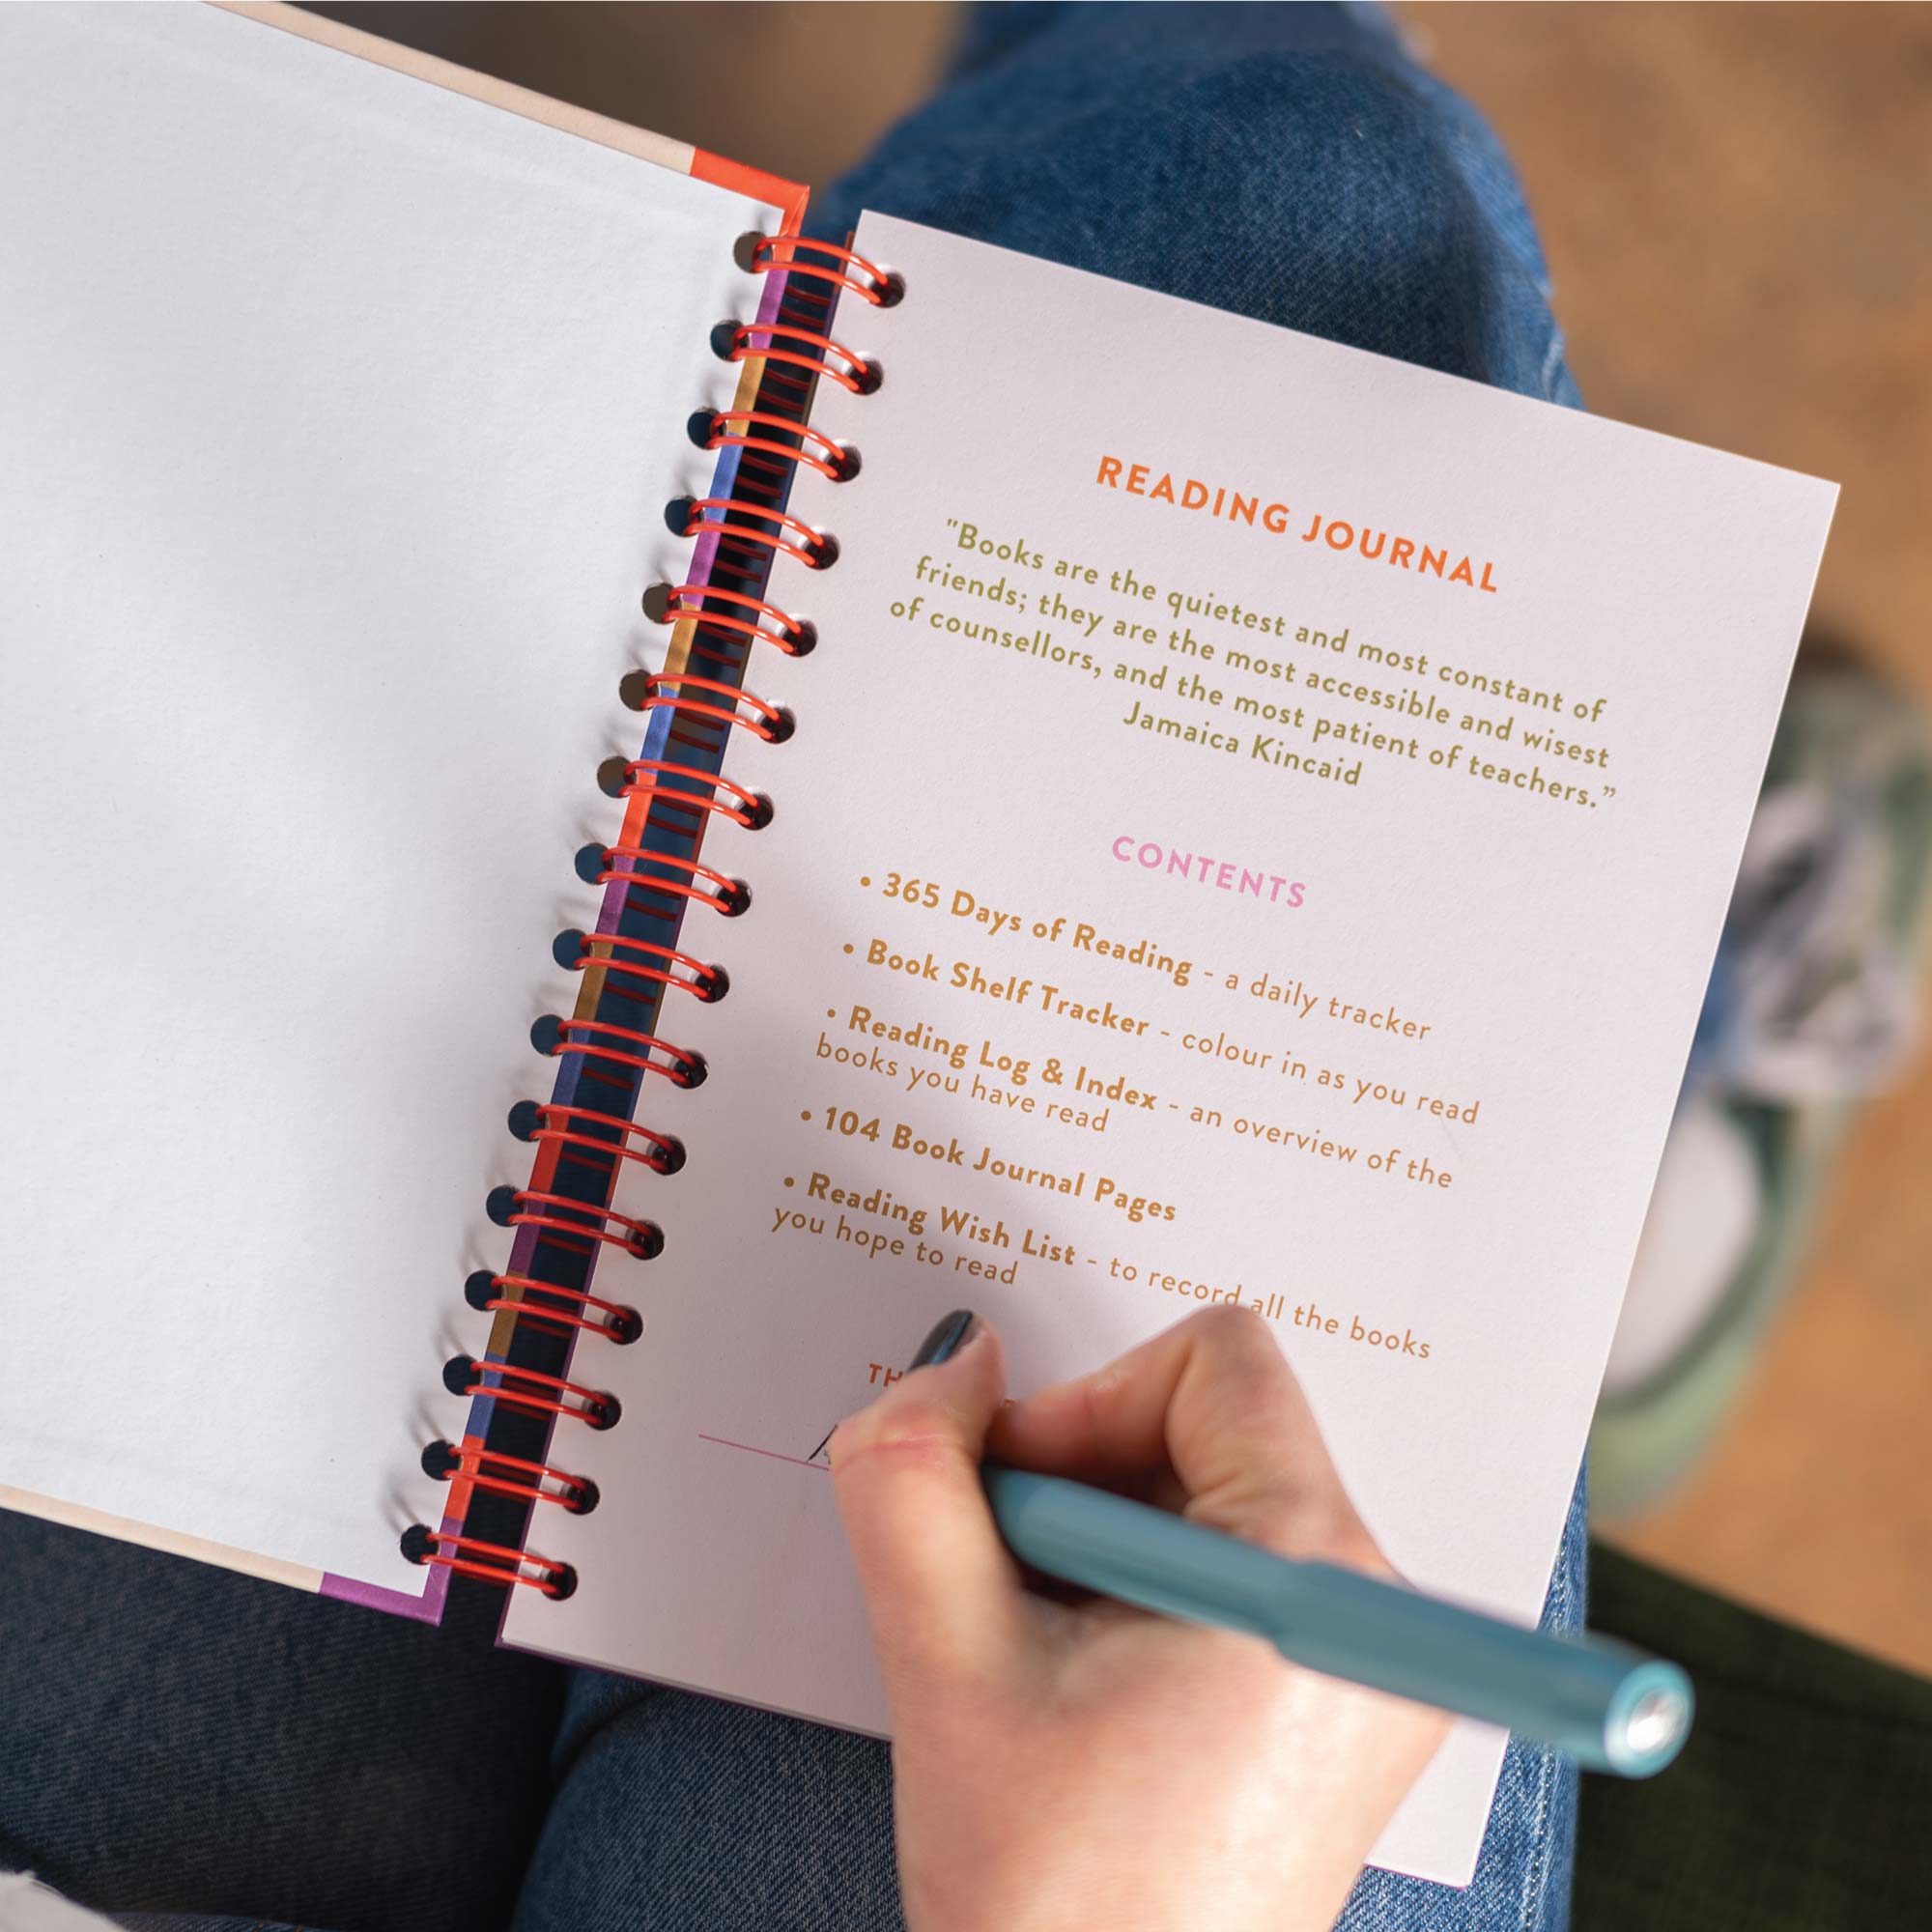 READING JOURNAL
"Books are the quietest and most constant of
friends; they are the most accessible and wisest
of counsellors, and the most patient of teachers.”
Jamaica Kincaid
CONTENTS
• 365 Days of Reading - a daily tracker
• Book Shelf Tracker - colour in as you read
• Reading Log & Index - an overview of the
books you have read
• 104 Book Journal Pages
• Reading Wish List - to record all the books
you hope to read